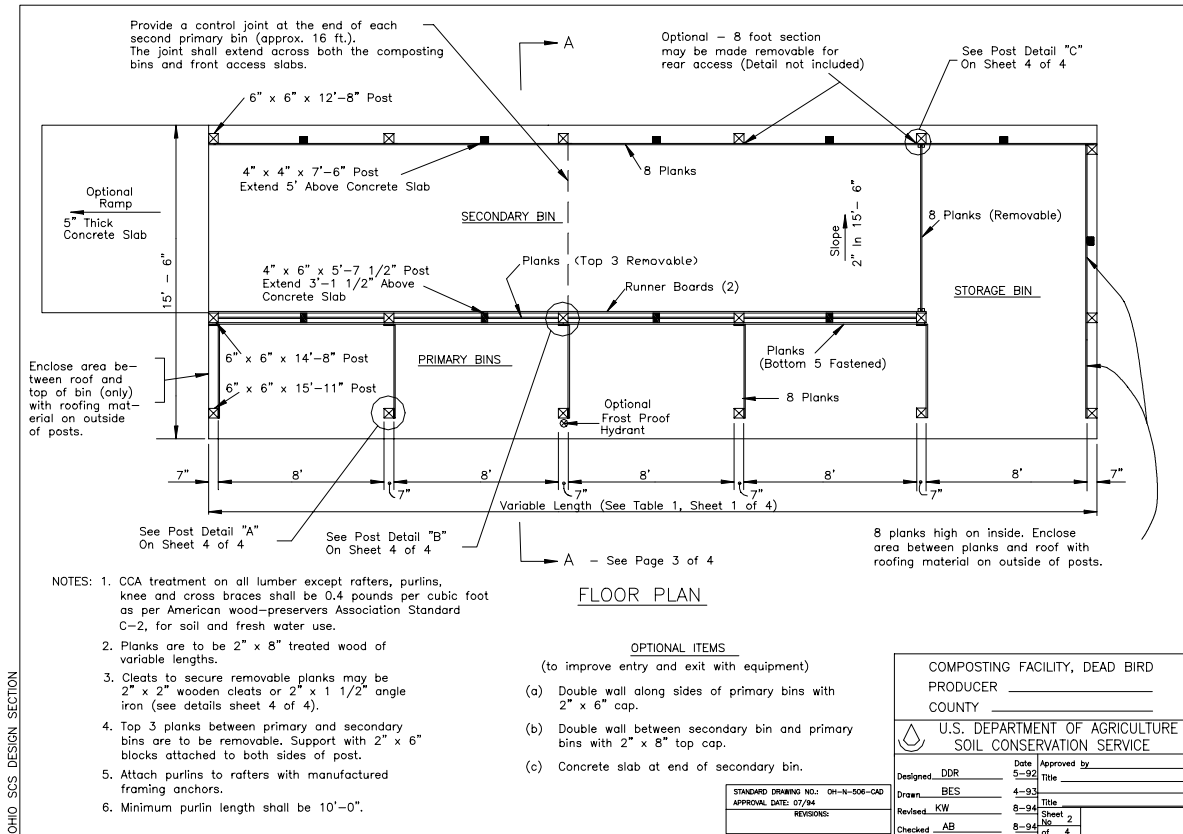 Provide a control joint at the end of each
second primary bin (approx. 16 ft.).
The joint shall extend across both the composting
bins and front access slabs.
A
Optional – 8 foot section
may be made removable for
rear access (Detail not included)
See Post Detail "C"
On Sheet 4 of 4
6" x 6" x 12'-8" Post
4" x 4" x 7'-6" Post
Extend 5' Above Concrete Slab
8 Planks
Optional
Ramp
5" Thick
Concrete Slab
15' - 6"
SECONDARY BIN
Slope
2" In 15'- 6"
8 Planks (Removable)
4" x 6" x 5'-7 1/2" Post
Extend 3'-1 1/2" Above
Concrete Slab
Planks (Top 3 Removable)
Runner Boards (2)
STORAGE BIN
Enclose area be-
tween roof and
top of bin (only)
with roofing mat-
erial on outside
of posts.
6" x 6" x 14'-8" Post
PRIMARY BINS
Planks
(Bottom 5 Fastened)
6" x 6" x 15'-11" Post
8 Planks
Optional
Frost Proof
Hydrant
7"
8'
8'
8'
8'
8'
7"
7"
7"
7"
7"
Variable Length (See Table 1, Sheet 1 of 4)
See Post Detail "A"
On Sheet 4 of 4
See Post Detail "B"
On Sheet 4 of 4
A – See Page 3 of 4
8 planks high on inside. Enclose
area between planks and roof with
roofing material on outside of posts.
FLOOR PLAN
NOTES: 1. CCA treatment on all lumber except rafters, purlins,
knee and cross braces shall be 0.4 pounds per cubic foot
as per American wood-preservers Association Standard
C-2, for soil and fresh water use.
2. Planks are to be 2" x 8" treated wood of
variable lengths.
3. Cleats to secure removable planks may be
2" x 2" wooden cleats or 2" x 1 1/2" angle
iron (see details sheet 4 of 4).
4. Top 3 planks between primary and secondary
bins are to be removable. Support with 2" x 6"
blocks attached to both sides of post.
5. Attach purlins to rafters with manufactured
framing anchors.
6. Minimum purlin length shall be 10'-0".
OPTIONAL ITEMS
(to improve entry and exit with equipment)
(a) Double wall along sides of primary bins with
2" x 6" cap.
(b) Double wall between secondary bin and primary
bins with 2" x 8" top cap.
(c) Concrete slab at end of secondary bin.
STANDARD DRAWING NO.: OH-N-506-CAD
APPROVAL DATE: 07/94
REVISIONS:
COMPOSTING FACILITY, DEAD BIRD
PRODUCER
COUNTY
U.S. DEPARTMENT OF AGRICULTURE
SOIL CONSERVATION SERVICE
Date
Designed DDR 5-92
Drawn BES 4-93
Revised KW 8-94
Checked AB 8-94
Approved by
Title
Title
Sheet
No 2
of 4
OHIO SCS DESIGN SECTION